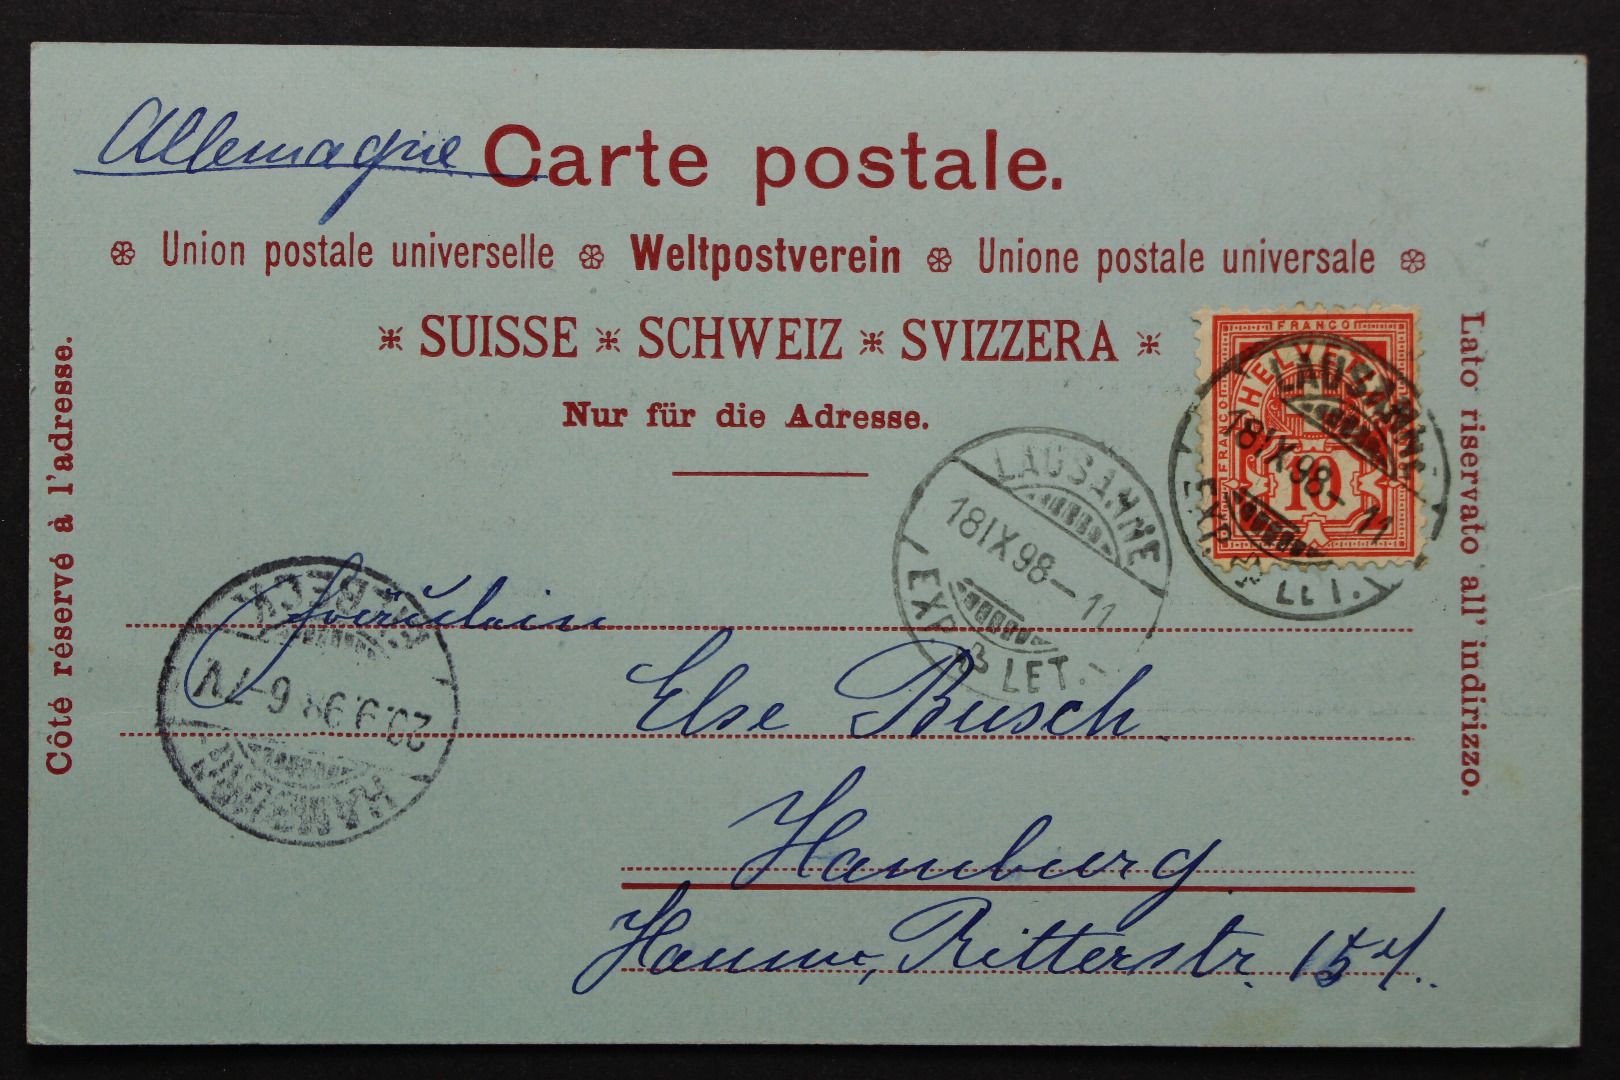 Allemagne Carte postale.
Union postale universelle Weltpostverein Unione postale universale
SUISSE SCHWEIZ SVIZZERA
Nur für die Adresse.
Côté réservé à l'adresse.
Lato riservato all' indirizzo.
FRANCO
FRANCO
HELVETIA
10
LAUSANNE
18 IX 98–11
EXP. LET.
LAUSANNE
18 IX 98–11
EXP. LET.
HAMBURG
20.9.98 6-7 V
Fräulein
Else Busch
Hamburg
Hamm, Ritterstr.